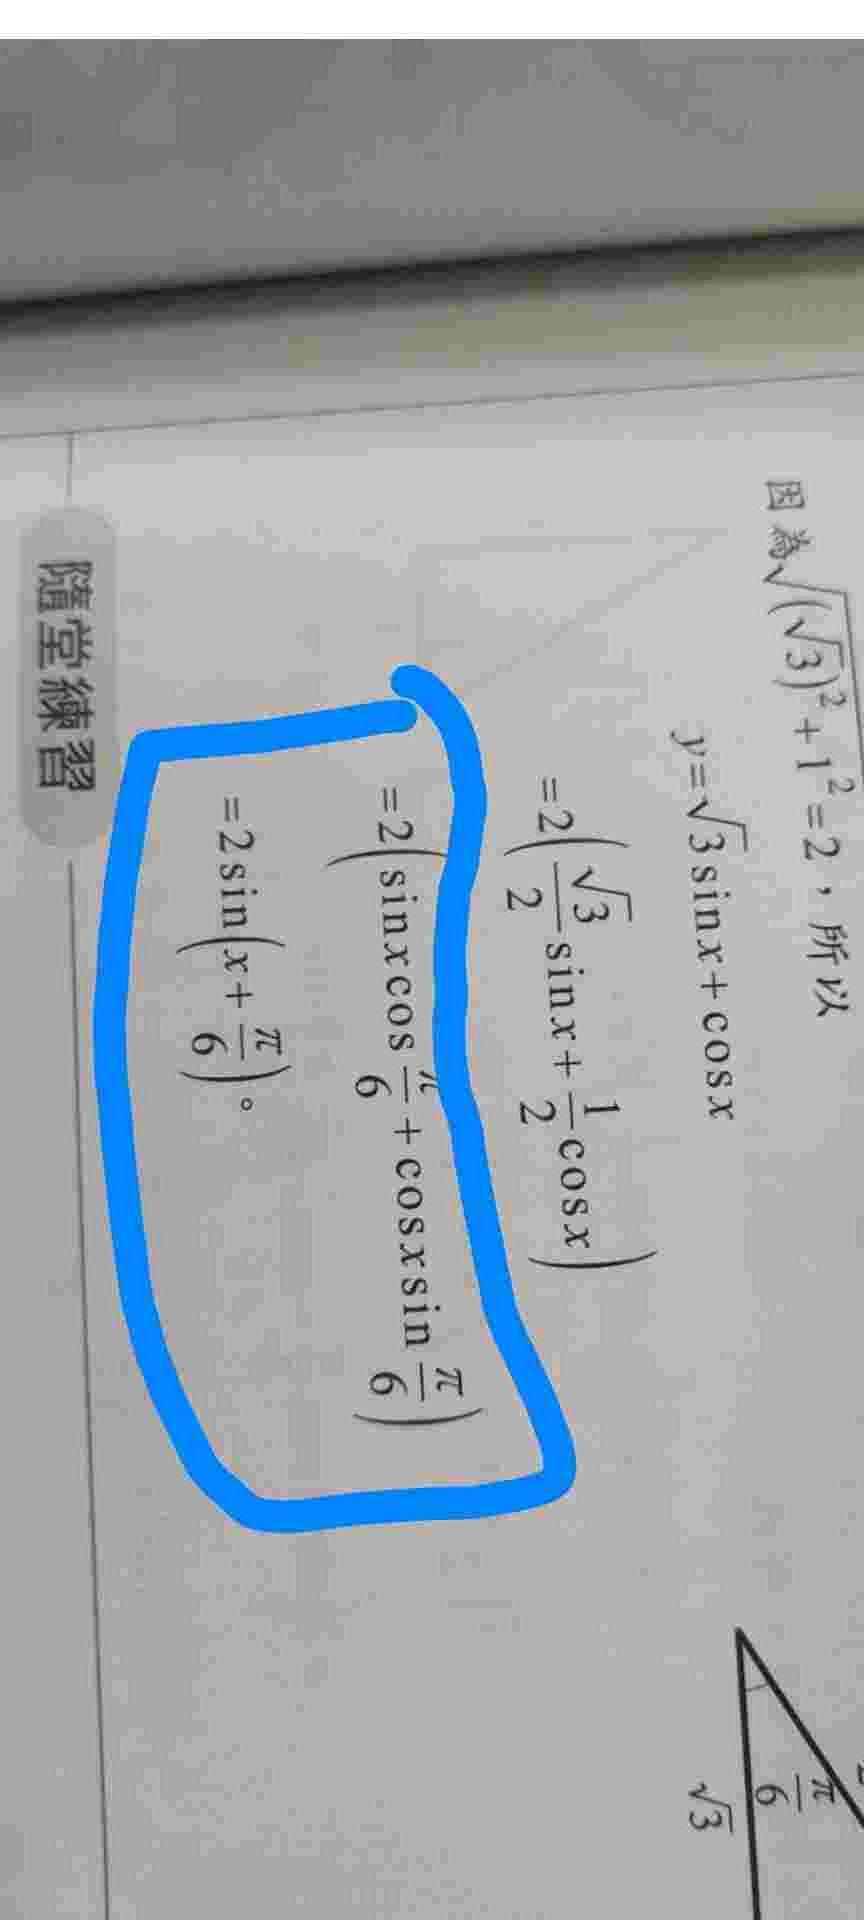 因為√((√3)²+1²)=2，所以
y=√3sinx+cosx
=2(√3/2 sinx+1/2 cosx)
=2(sinxcosπ/6+cosxsinπ/6)
=2sin(x+π/6)。
π/6
√3
隨堂練習